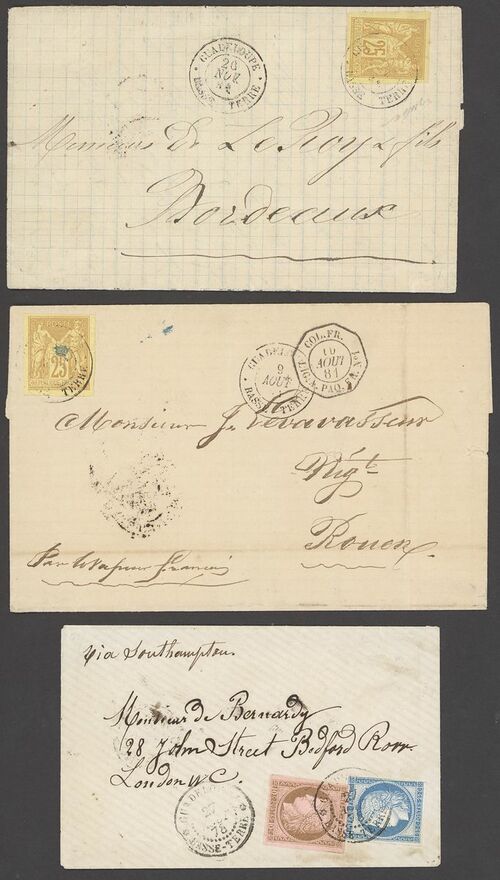 GUADELOUPE
26
NOV.
BASSE-TERRE
25
Messieurs De Le Roy & fils
Bordeaux
25
TERRE
9
AOUT
COL. FR.
10
AOUT
81
LIG. A. PAQ. FR.
Monsieur J. Levavasseur
Négt.
Rouen
Par Vapeur français
via Southampton.
Monsieur de Bernardy
28 John Street Bedford Row
London W C.
GUADELOUPE
27
78
BASSE-TERRE
BASSE-TERRE